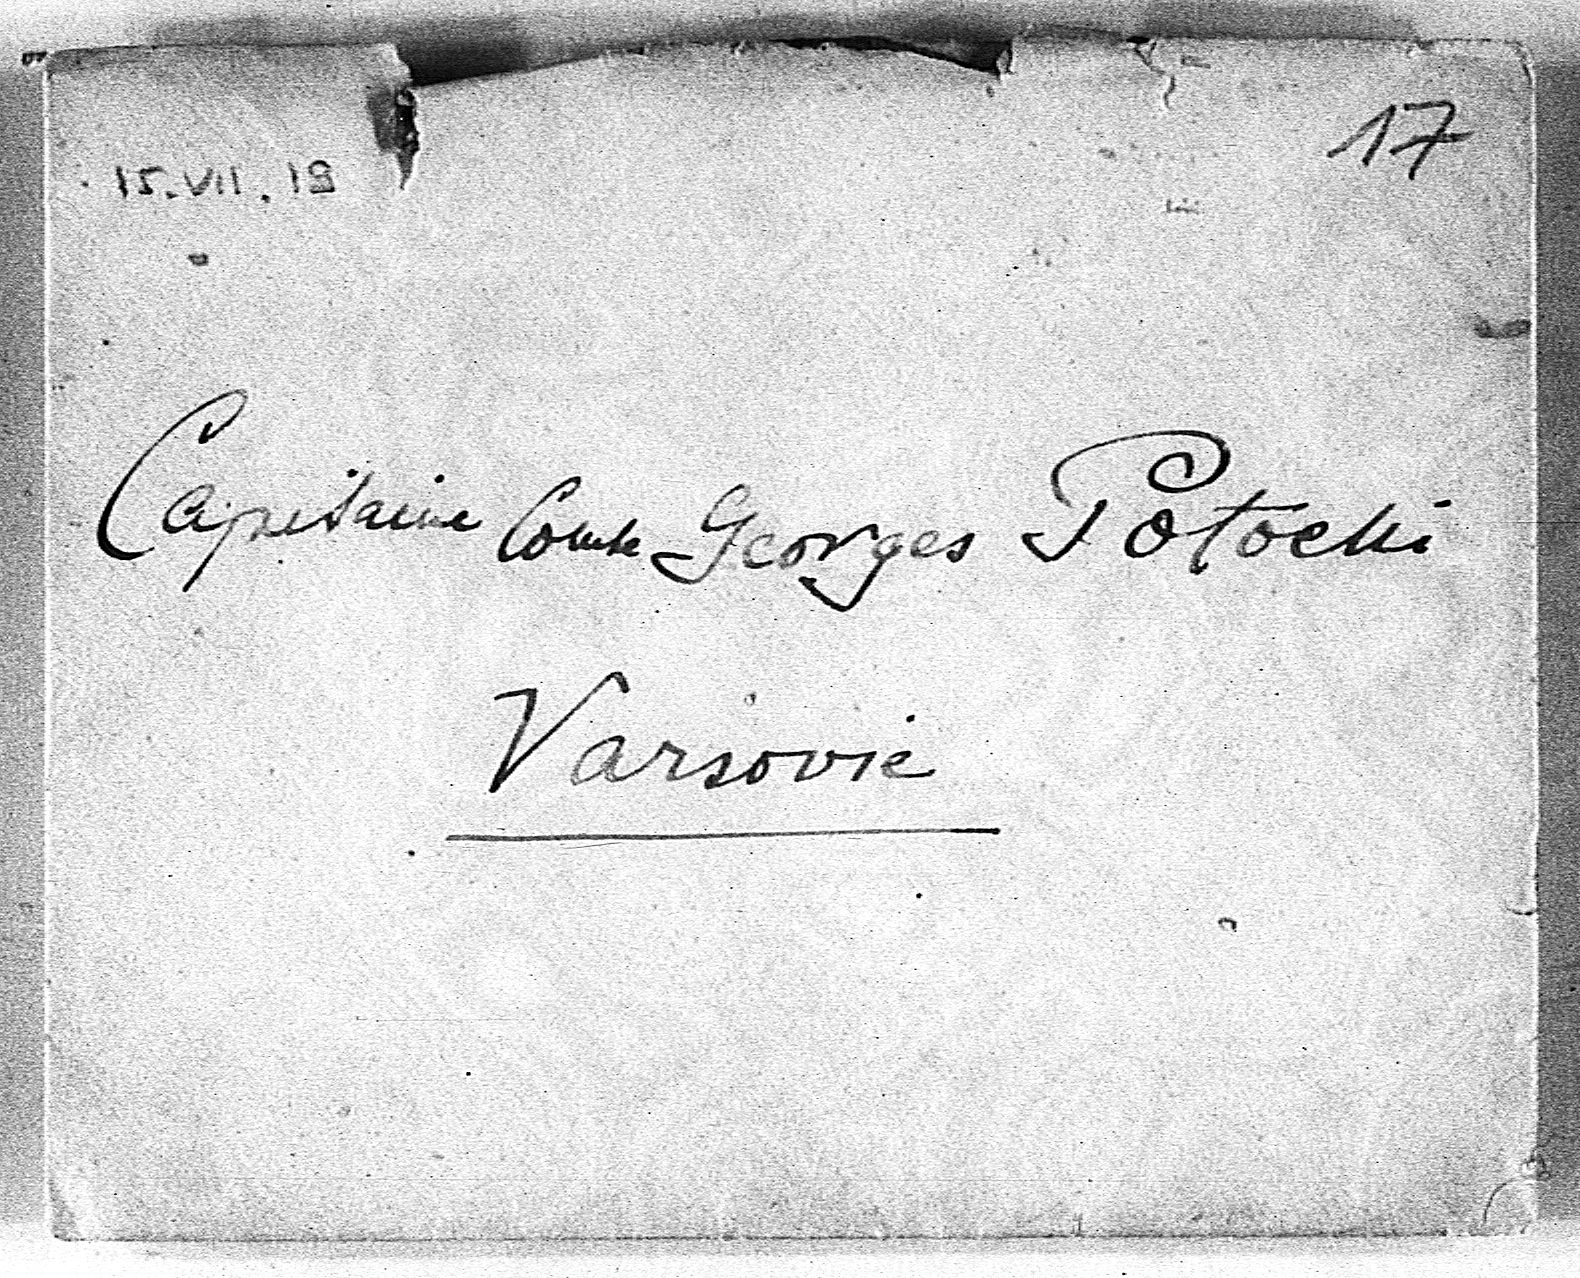 17
15.VII.19
Capitaine Comte Georges Potocki
Varsovie